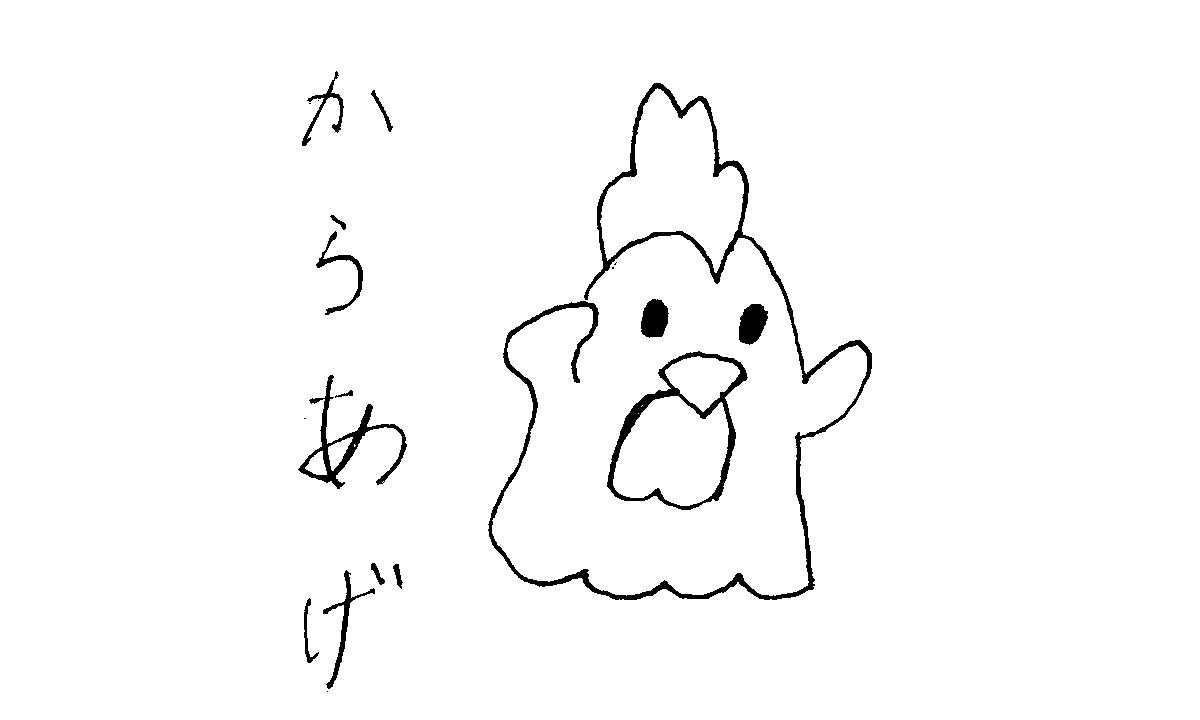 からあげ